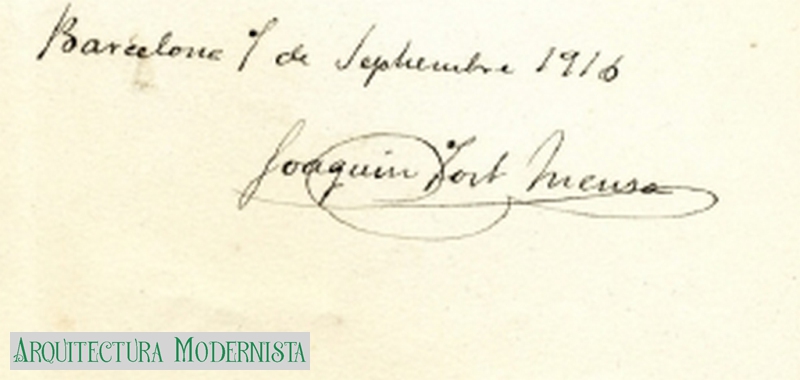 Barcelona 7 de Septiembre 1916
Joaquin Tort Mensa
ARQUITECTURA MODERNISTA